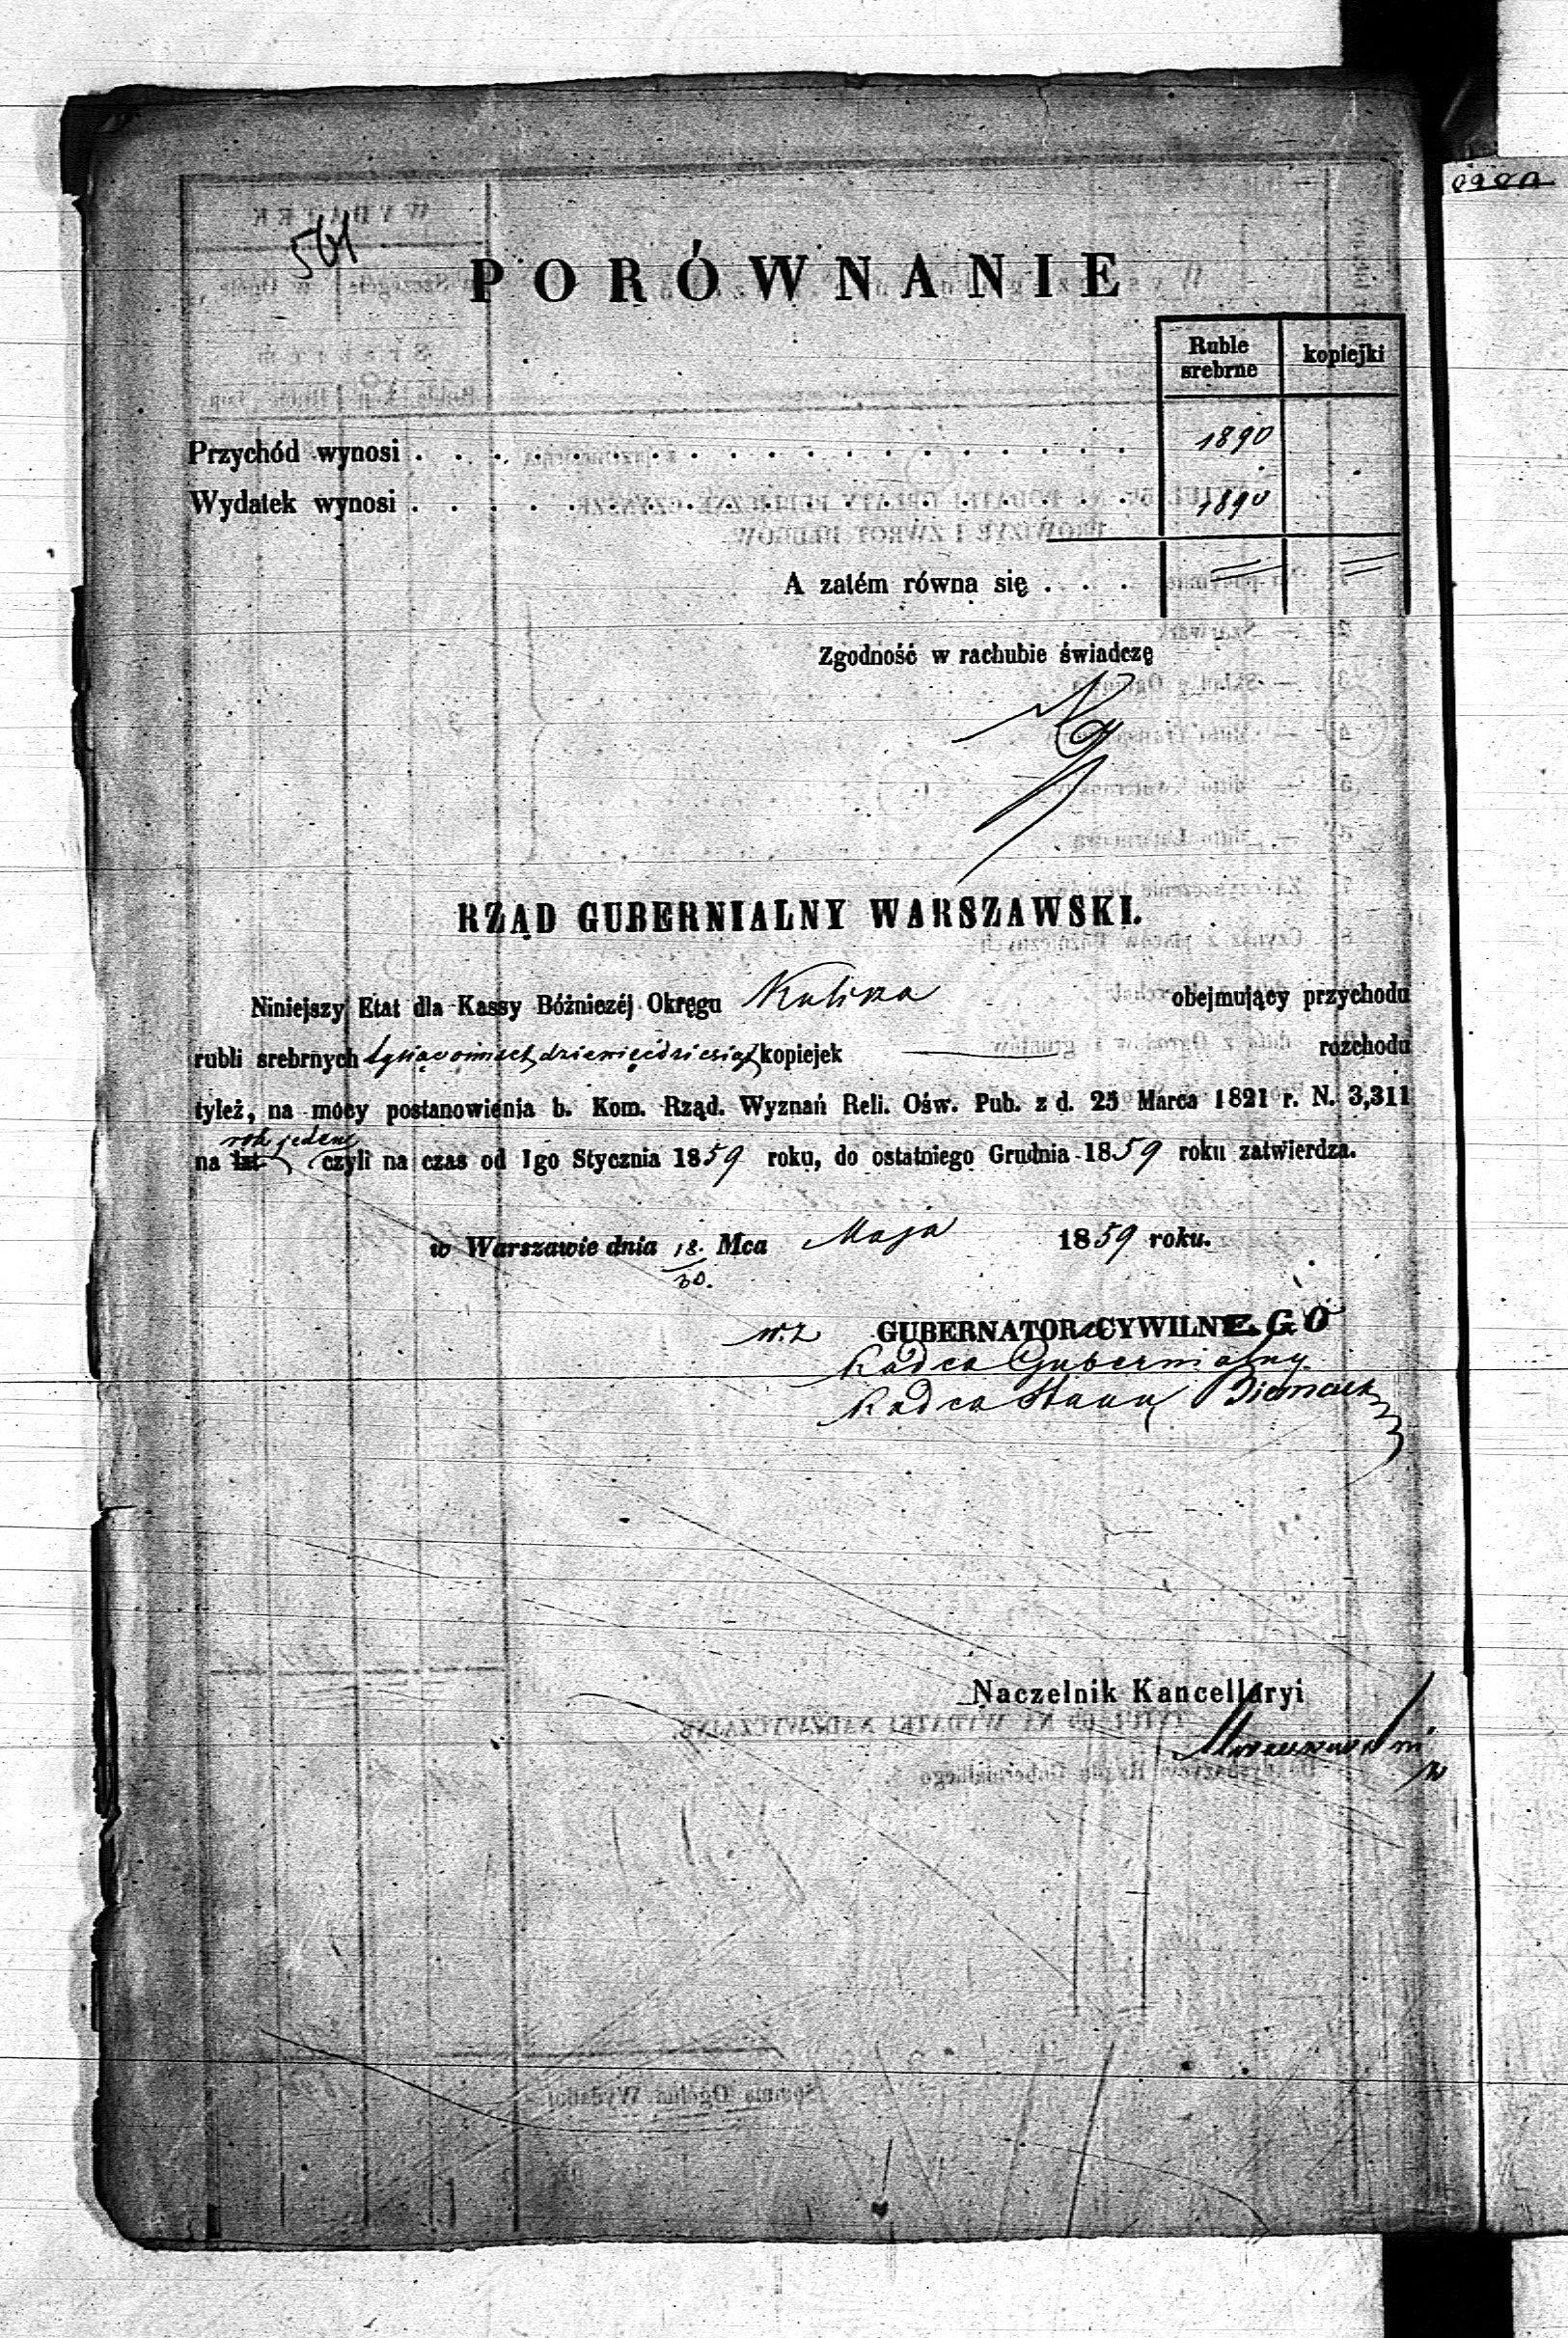 561
PORÓWNANIE
Ruble srebrne kopiejki
Przychód wynosi . . . . 1890
Wydatek wynosi . . . . 1890
A zatém równa się . . .
Zgodność w rachubie świadczę
RZĄD GUBERNIALNY WARSZAWSKI.
Niniejszy Etat dla Kassy Bóżniczéj Okręgu Kalisza obejmujący przychodu
rubli srebrnych tysiąc ośmset dziewięćdziesiąt kopiejek — rozchodu
tyleż, na mocy postanowienia b. Kom. Rząd. Wyznań Reli. Ośw. Pub. z d. 25 Marca 1821 r. N. 3,311
rok jeden
na lat czyli na czas od 1go Stycznia 1859 roku, do ostatniego Grudnia 1859 roku zatwierdza.
w Warszawie dnia 18/30. Mca Maja 1859 roku.
w. z GUBERNATORA CYWILNEGO
Radca Gubernialny
Radca Stanu
Naczelnik Kancellaryi